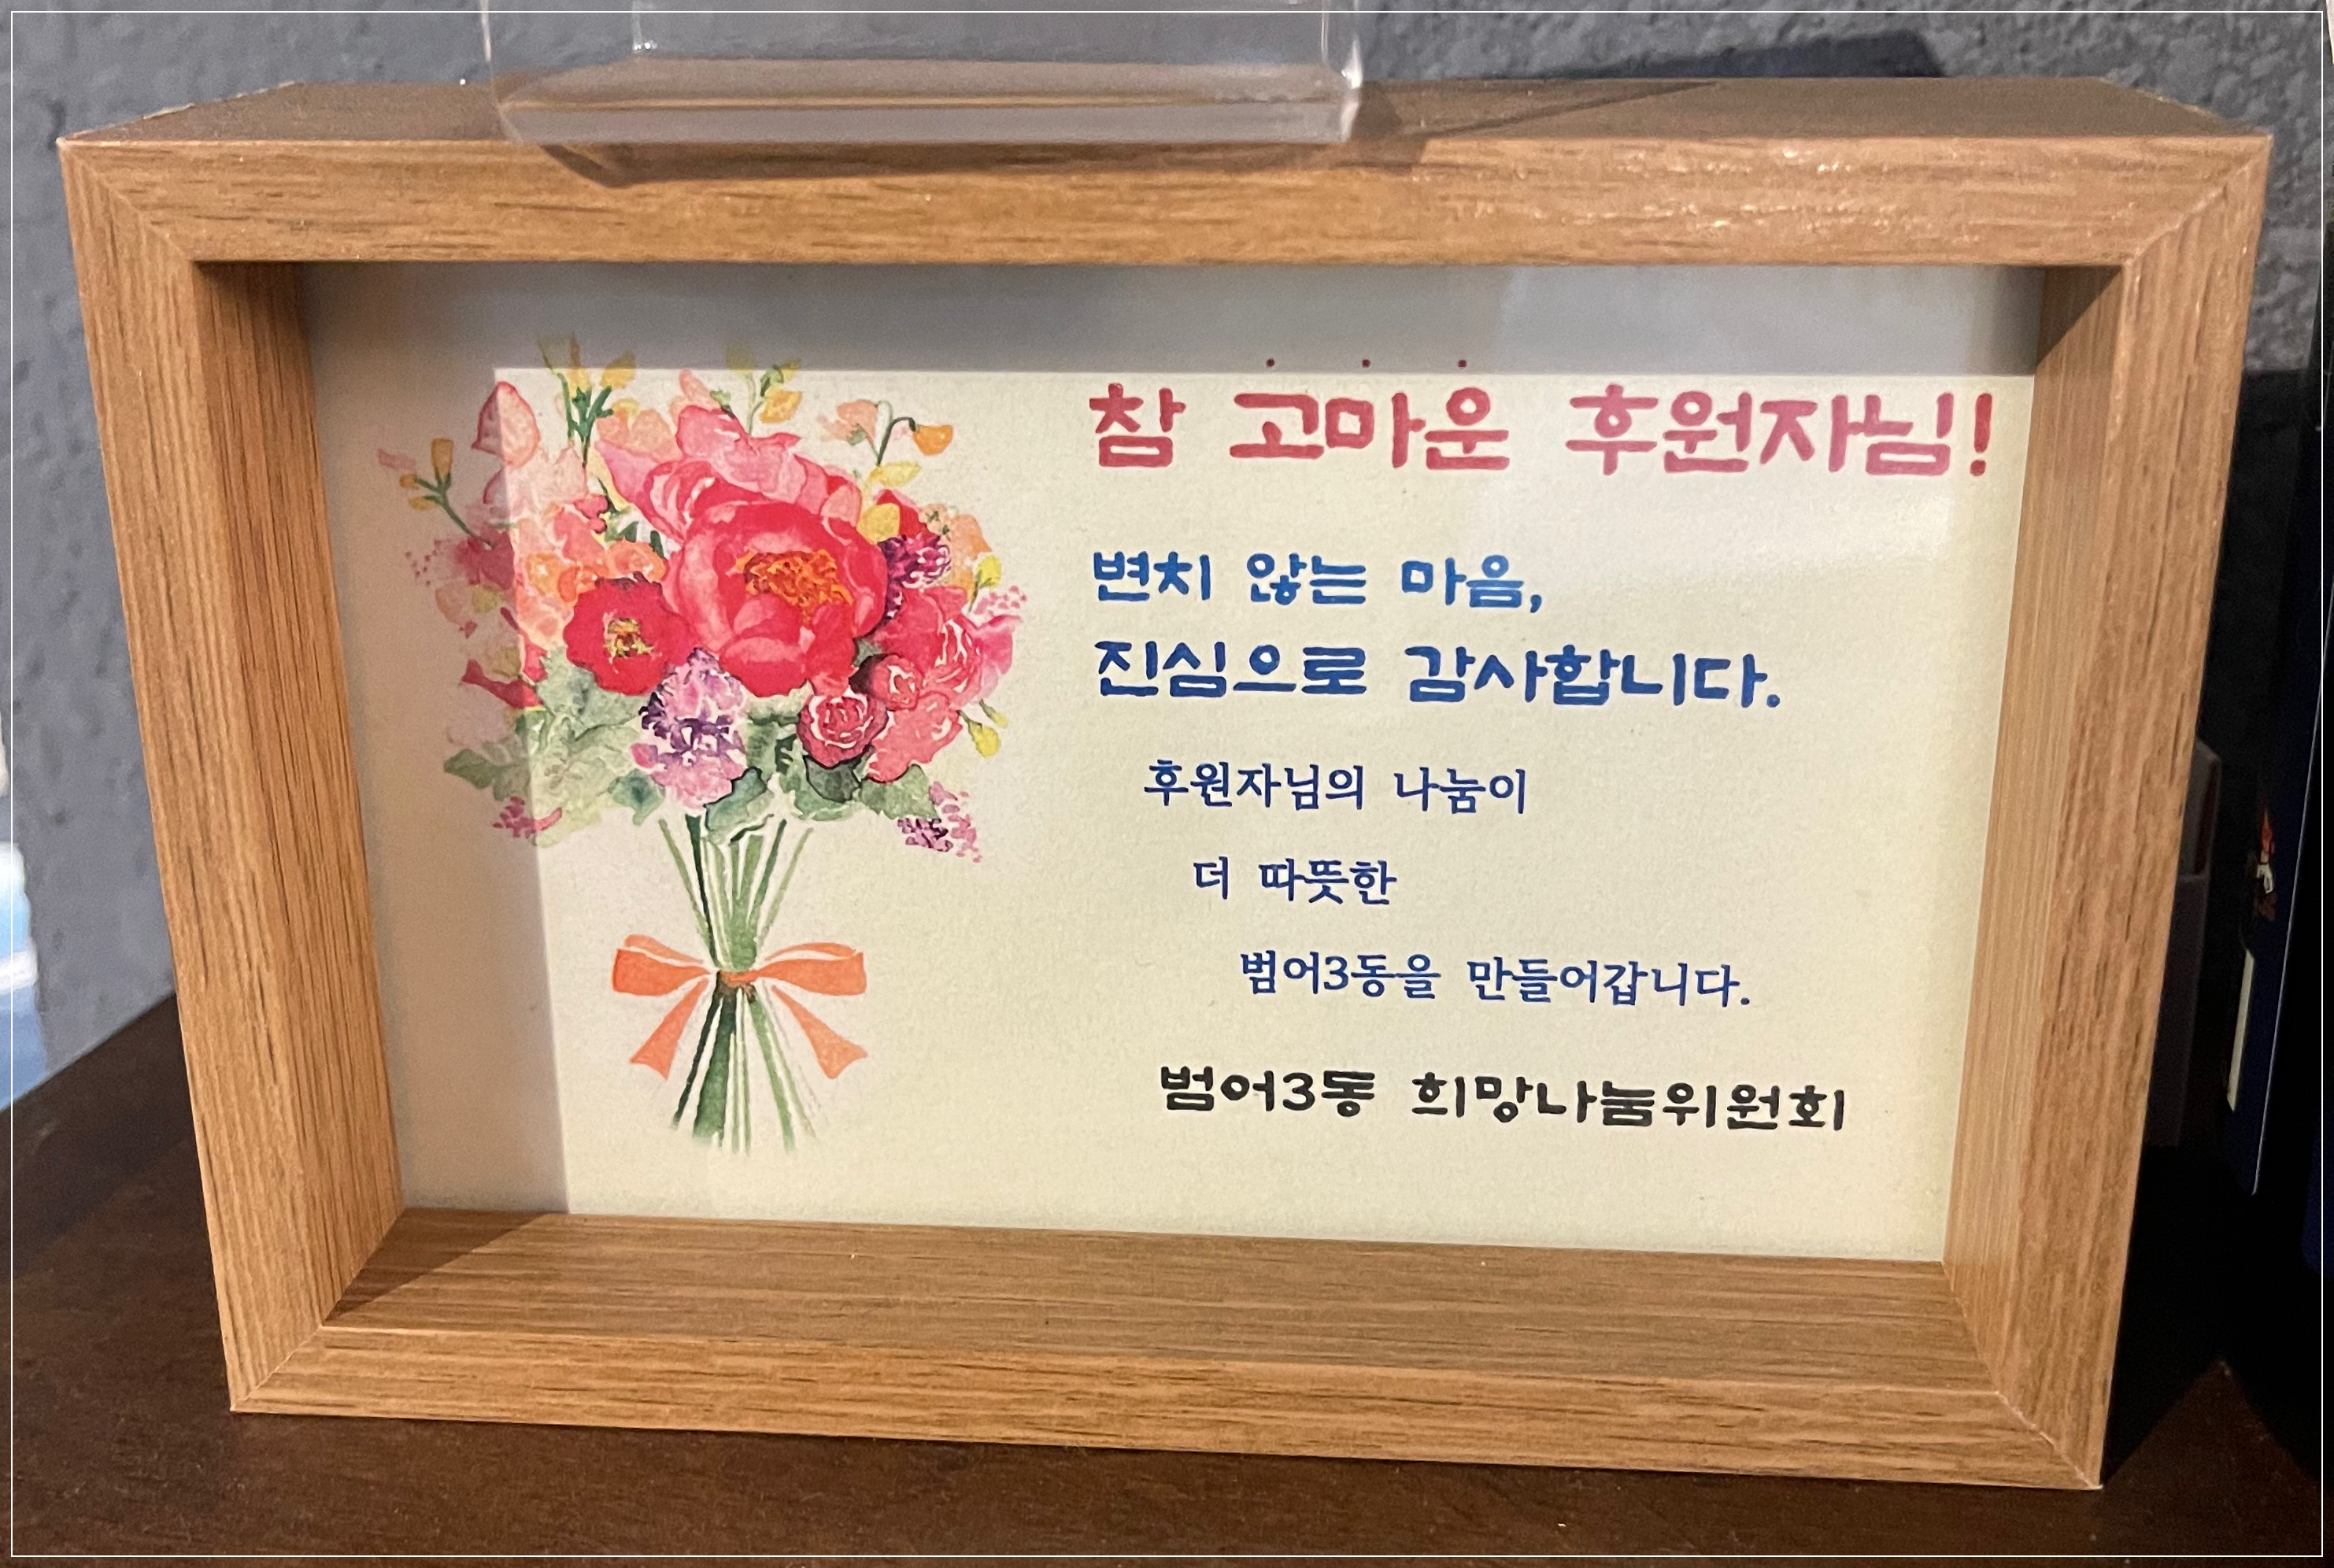 참 고마운 후원자님!
변치 않는 마음,
진심으로 감사합니다.
후원자님의 나눔이
더 따뜻한
범어3동을 만들어갑니다.
범어3동 희망나눔위원회